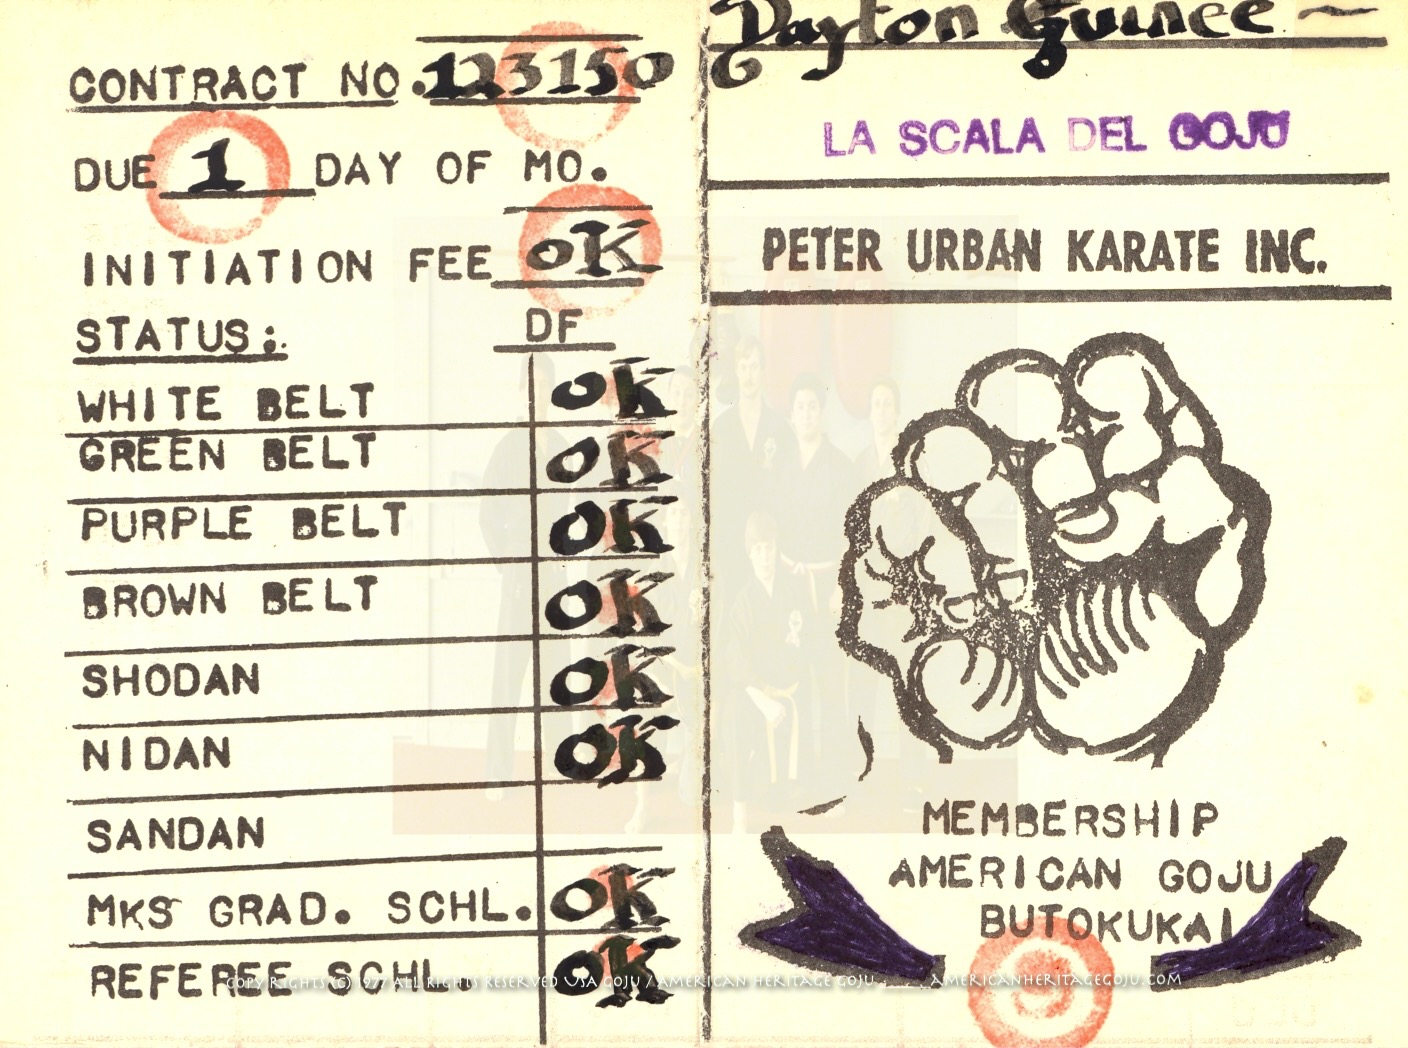 CONTRACT NO. 123150
DUE 1 DAY OF MO.
INITIATION FEE OK
STATUS: DF
WHITE BELT OK
GREEN BELT OK
PURPLE BELT OK
BROWN BELT OK
SHODAN OK
NIDAN OK
SANDAN
MKS GRAD. SCHL. OK
REFEREE SCHL. OK
Dayton Guinee
LA SCALA DEL GOJU
PETER URBAN KARATE INC.
MEMBERSHIP
AMERICAN GOJU
BUTOKUKAI
COPY RIGHTS (C) 1977 ALL RIGHTS RESERVED USA GOJU / AMERICAN HERITAGE GOJU AMERICANHERITAGEGOJU.COM